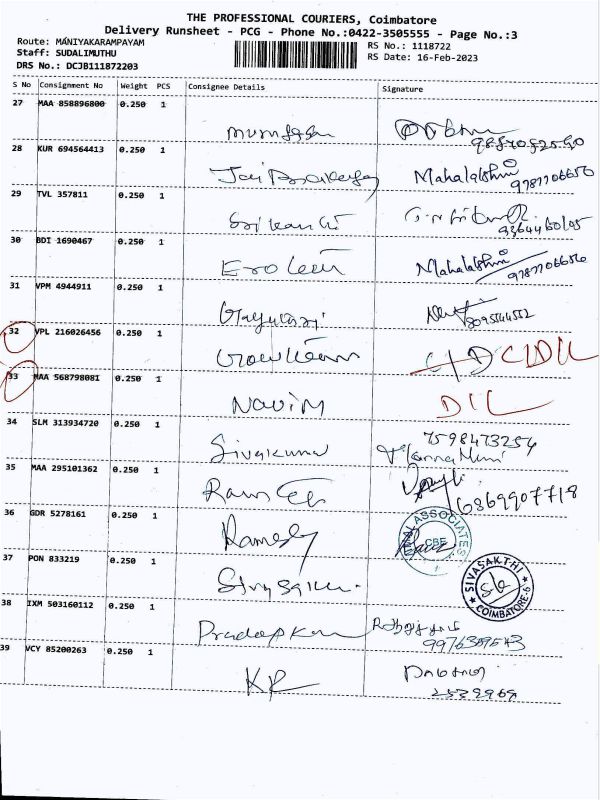 THE PROFESSIONAL COURIERS, Coimbatore
Delivery Runsheet - PCG - Phone No:0422-3505555 - Page No.:3
Route: MANIYAKARAMPAYAM
RS No.: 1118722
Staff: SUDALIMUTHU
RS Date: 16-Feb-2023
DRS No.: DCJB111872203
S No Consignment No Weight PCS Consignee Details Signature
27 MAA 858896800 0.250 1
28 KUR 694564413 0.250 1 Mahalakshmi
29 TVL 357811 0.250 1 Srikanth
30 BDI 1690467 0.250 1 Mahalakshmi
31 VPM 4944911 0.250 1 Gayathri
8095544552
32 VPL 216026456 0.250 1
33 MAA 568798081 0.250 1 Navin D/L
34 SLM 313934720 0.250 1 Sivakumar 7598473254
35 MAA 295101362 0.250 1
6369907718
36 GDR 5278161 0.250 1 Ramesh ASSOCIATES CBE
37 PON 833219 0.250 1 SIVASAKTHI COIMBATORE-6
38 IXM 503160112 0.250 1 Pradeep Kum
39 VCY 85200263 0.250 1 KR
2539969